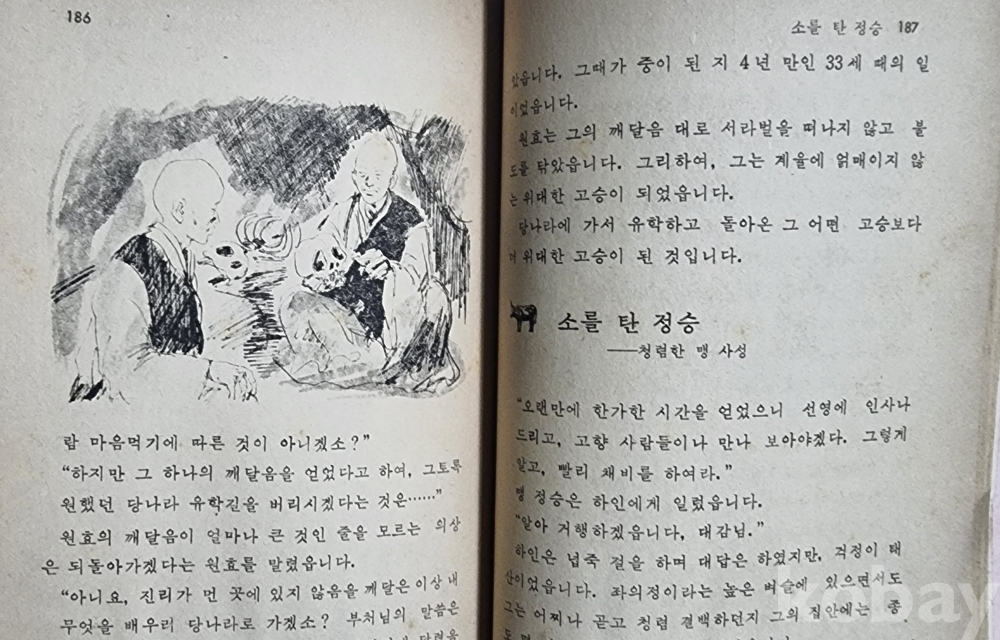 186
람 마음먹기에 따른 것이 아니겠소?"
"하지만 그 하나의 깨달음을 얻었다고 하여, 그토록
원했던 당나라 유학길을 버리시겠다는 것은……"
원효의 깨달음이 얼마나 큰 것인 줄을 모르는 의상
은 되돌아가겠다는 원효를 말렸읍니다.
"아니요, 진리가 먼 곳에 있지 않음을 깨달은 이상 내
무엇을 배우러 당나라로 가겠소? 부처님의 말씀은
소를 탄 정승 187
았읍니다. 그때가 중이 된 지 4년 만인 33세 때의 일
이었읍니다.
원효는 그의 깨달음 대로 서라벌을 떠나지 않고 불
도를 닦았읍니다. 그리하여, 그는 계율에 얽매이지 않
는 위대한 고승이 되었읍니다.
당나라에 가서 유학하고 돌아온 그 어떤 고승보다
더 위대한 고승이 된 것입니다.
소를 탄 정승
──청렴한 맹 사성
"오랜만에 한가한 시간을 얻었으니 선영에 인사나
드리고, 고향 사람들이나 만나 보아야겠다. 그렇게
알고, 빨리 채비를 하여라."
맹 정승은 하인에게 일렀읍니다.
"알아 거행하겠읍니다, 대감님."
하인은 넙죽 절을 하며 대답은 하였지만, 걱정이 태
산이었읍니다. 좌의정이라는 높은 벼슬에 있으면서도
그는 어찌나 곧고 청렴 결백하던지 그의 집안에는 종
kobay